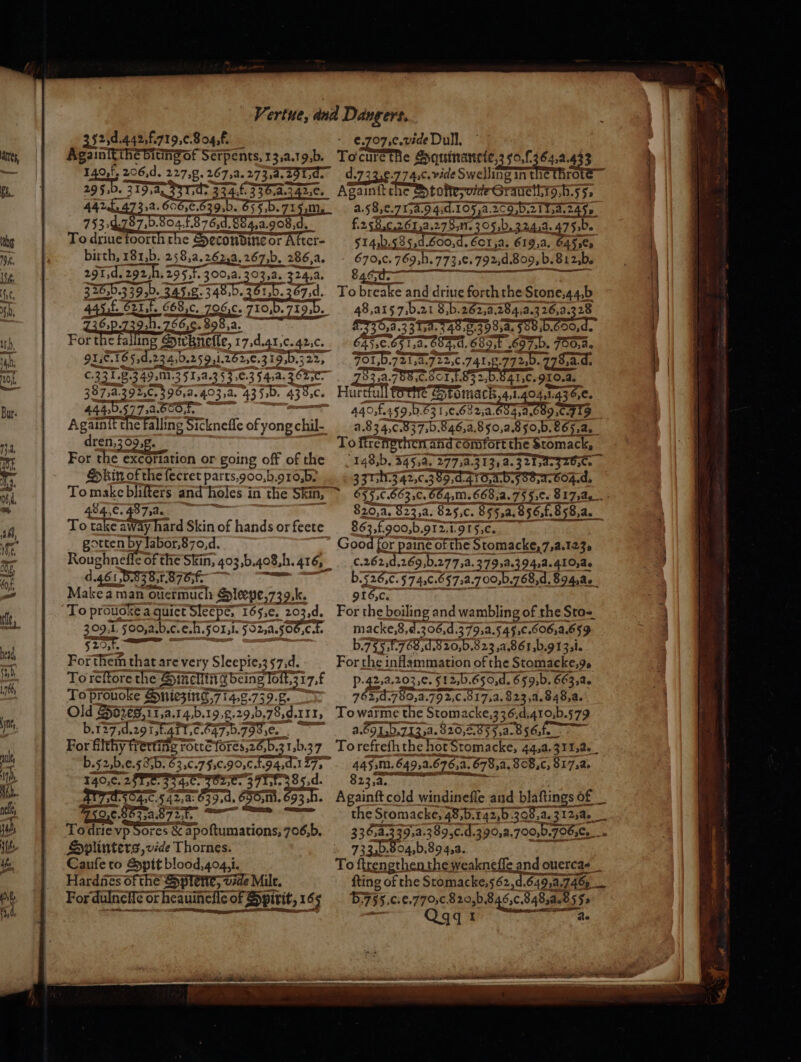 Vertue, and Dangers.
352,d.442,f.719,c.804,f.
Against the biting of Serpents, 13,a.19,b.
140,f, 206,d. 227,g. 267,a. 273,a. 291,d.
295,b. 319,a, 331,d. 334,f. 336,a.342,c.
442,f,473,a. 606,c.639,b. 655,b.715,m,
753,d,787,b.804.f.876,d.884,a.908,d.
To driue foorth the Secondine or After-
birth, 181,b. 258,a.262,a,267,b, 286,a.
291,d, 292,h. 295,f. 300,a. 303,a. 324,a.
326,b.339,b. 345,g. 348,b. 361,b. 367,d.
445,f. 621,f. 668,c. 706,c. 710,b. 719,b.
736,p.739,h. 766,c. 898,a.
For the falling Sicknesse, 17,d.41,c.42,c.
91,c.165,d,234,b.259,l.262,c.319,b.322,
c.331.g.349,m.351,a.353,c.354,a.362,c.
387,a.392,c.396,a.403,a. 435,b. 438,c.
444,b.577,a.600,f.
Against the falling Sicknesse of yong chil-
dren,309,g.
For the excoriation or going off of the
Skin of the secret parts,900,b.910,b.
To make blisters and holes in the Skin,
484,c. 487,a.
To take away hard Skin of hands or feete
gotten by labor,870,d.
Roughnesse of the Skin, 403,b.408,h. 416,
d.461,b.838,f,876,f.
Make a man ouermuch Sleepe,739,k.
To prouoke a quiet Sleepe, 165,e, 203,d.
309,l. 500,a,b.c.e.h,501,i. 502,a.506,c.f.
520,f.
For them that are very Sleepie,357,d.
To restore the Smelling being lost,317,f
To prouoke Sniezing,714,g.739.g.
Old Sores,11,a.14,b.19,g.29,b,78,d.111,
b.127,d.291,f.411,c.647,b.798,e.
For filthy fretting rotte sores,26,b.31,b.37
b.52,b,e.58,b. 63,c.75,c.90,c.f.94,d.127,
140,c. 251,e. 334,c. 362,e. 371,f.385,d.
417,d.504,c.542,a. 639,d. 690,m. 693,h.
750,c.863,a.872,f.
To drie vp Sores & apostumations, 706,b.
Splinters, vide Thornes.
Cause to Spit blood,404,i.
Hardnes of the Splene, vide Milt.
For dulnesse or heauinesse of Spirit, 165
e.707,c.vide Dull.
To cure the Squinancie,350,f.364,a.433
d.733,g.774,c.vide Swelling in the throte
Against the Stone, vide Grauell,19,b.55,
a.58,c.71,a.94,d.105,a.209,b.211,a.245,
f.258,c,261,a.278,n. 305,b.324,a. 475,b.
514,b.585,d.600,d. 601,a. 619,a. 645,e,
670,c. 769,h. 773,c. 792,d,809, b.812,b.
846,d.
To breake and driue forth the Stone,44,b
48,a157,b.21 8,b.262,a.284,a.326,a.328
f.330,a.331,a.348.g.398,a. 588,b.600,d.
645,c.651,a. 684,d, 689,f 697,b. 700,a.
701,b.721,a.722,c.741,g.772,b. 778,a.d.
783,a.788,c.801,f.832,b.841,c. 910.a.
Hurtfull to the Stomack,4,i.404,i.436,e.
440,f.459,b.631,c.682,a.684,a,689,c.719
a.834,c.837,b.846,a.850,a.850,b.865,a,
To strengthen and comfort the Stomack,
148,b. 345,a, 277,a.313,a.321,a.326,c.
331,h.342,c.389,d.410,a.b.588,a.604,d.
655,c.663,c, 664,m.668,a.755,c. 817,a.
820,a. 823,a. 825,c. 855,a.856,f.858,a.
863,f.900,b.912,l.915,c.
Good for paine of the Stomacke,7,a.123,
c.262,d.269,b.277,a. 379,a.394,a.410,a.
b.526,c.574,c.657,a.700,b.768,d.894,a.
916,c.
For the boiling and wambling of the Sto-
macke,8,d.306,d.379,a.545,c.606,a.659
b.755,f.768,d,820,b.823,a,861,b.913,i.
For the inflammation of the Stomacke,9,
p.42,a.203,c. 512,b.650,d. 659,b. 663,a.
762,d.780,a.792,c.817,a. 823,a, 848,a.
To warme the Stomacke,336,d,410,b.579
a.691,b.713,a. 820,c.855,a.856,f.
To refresh the hot Stomacke, 44,a.311,a.
445,m. 649,a.676,a. 678,a. 808,c, 817,a.
823,a.
Against cold windinesse and blastings of
the Stomacke, 48,b.142,b.308,a. 312,a.
336,a.339,a.389,c.d.390,a.700,b.706,c.
733,b.804,b,894,a.
To strengthen the weaknesse and ouercas-
sting of the Stomacke,562,d.649,a.746,
b.755,c.e.770,c.820,b.846,c.848,a.855,
Qqq 1 a.